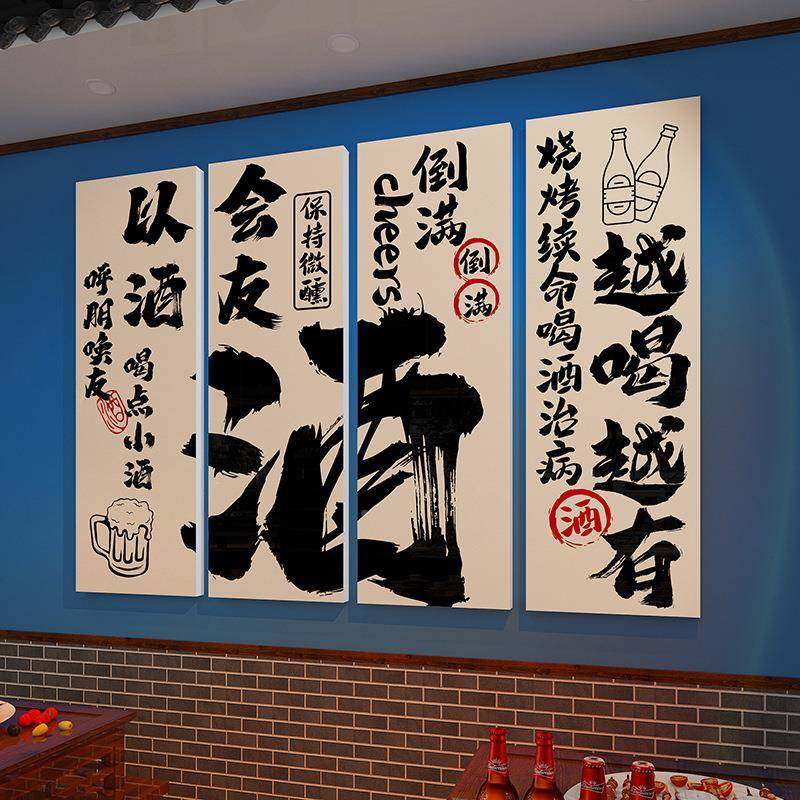 以酒
呼朋唤友
喝点小酒
酒
会友
保持微醺
酒
cheers
倒满
倒
满
烧烤续命喝酒治病
越喝越有
酒